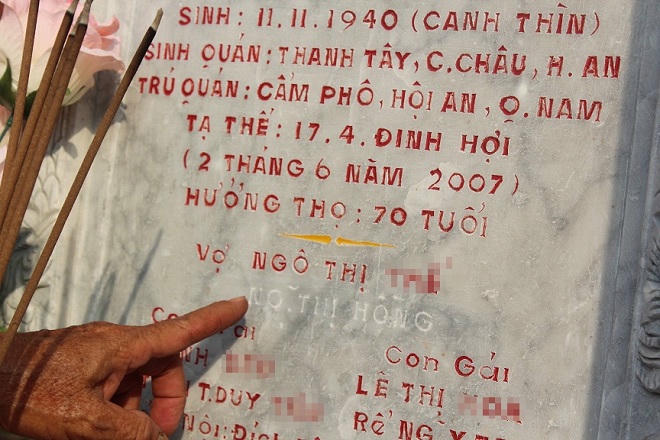 SINH: 11.11.1940 (CANH THÌN)
SINH QUÁN: THANH TÂY, C.CHÂU, H. AN
TRÚ QUÁN: CẨM PHÔ, HỘI AN, Q. NAM
TẠ THẾ: 17.4. ĐINH HỢI
(2 THÁNG 6 NĂM 2007)
HƯỞNG THỌ: 70 TUỔI
VỢ NGÔ THỊ
THỊ HỒNG
Con Gái
LÊ THỊ
T.DUY
RỂ